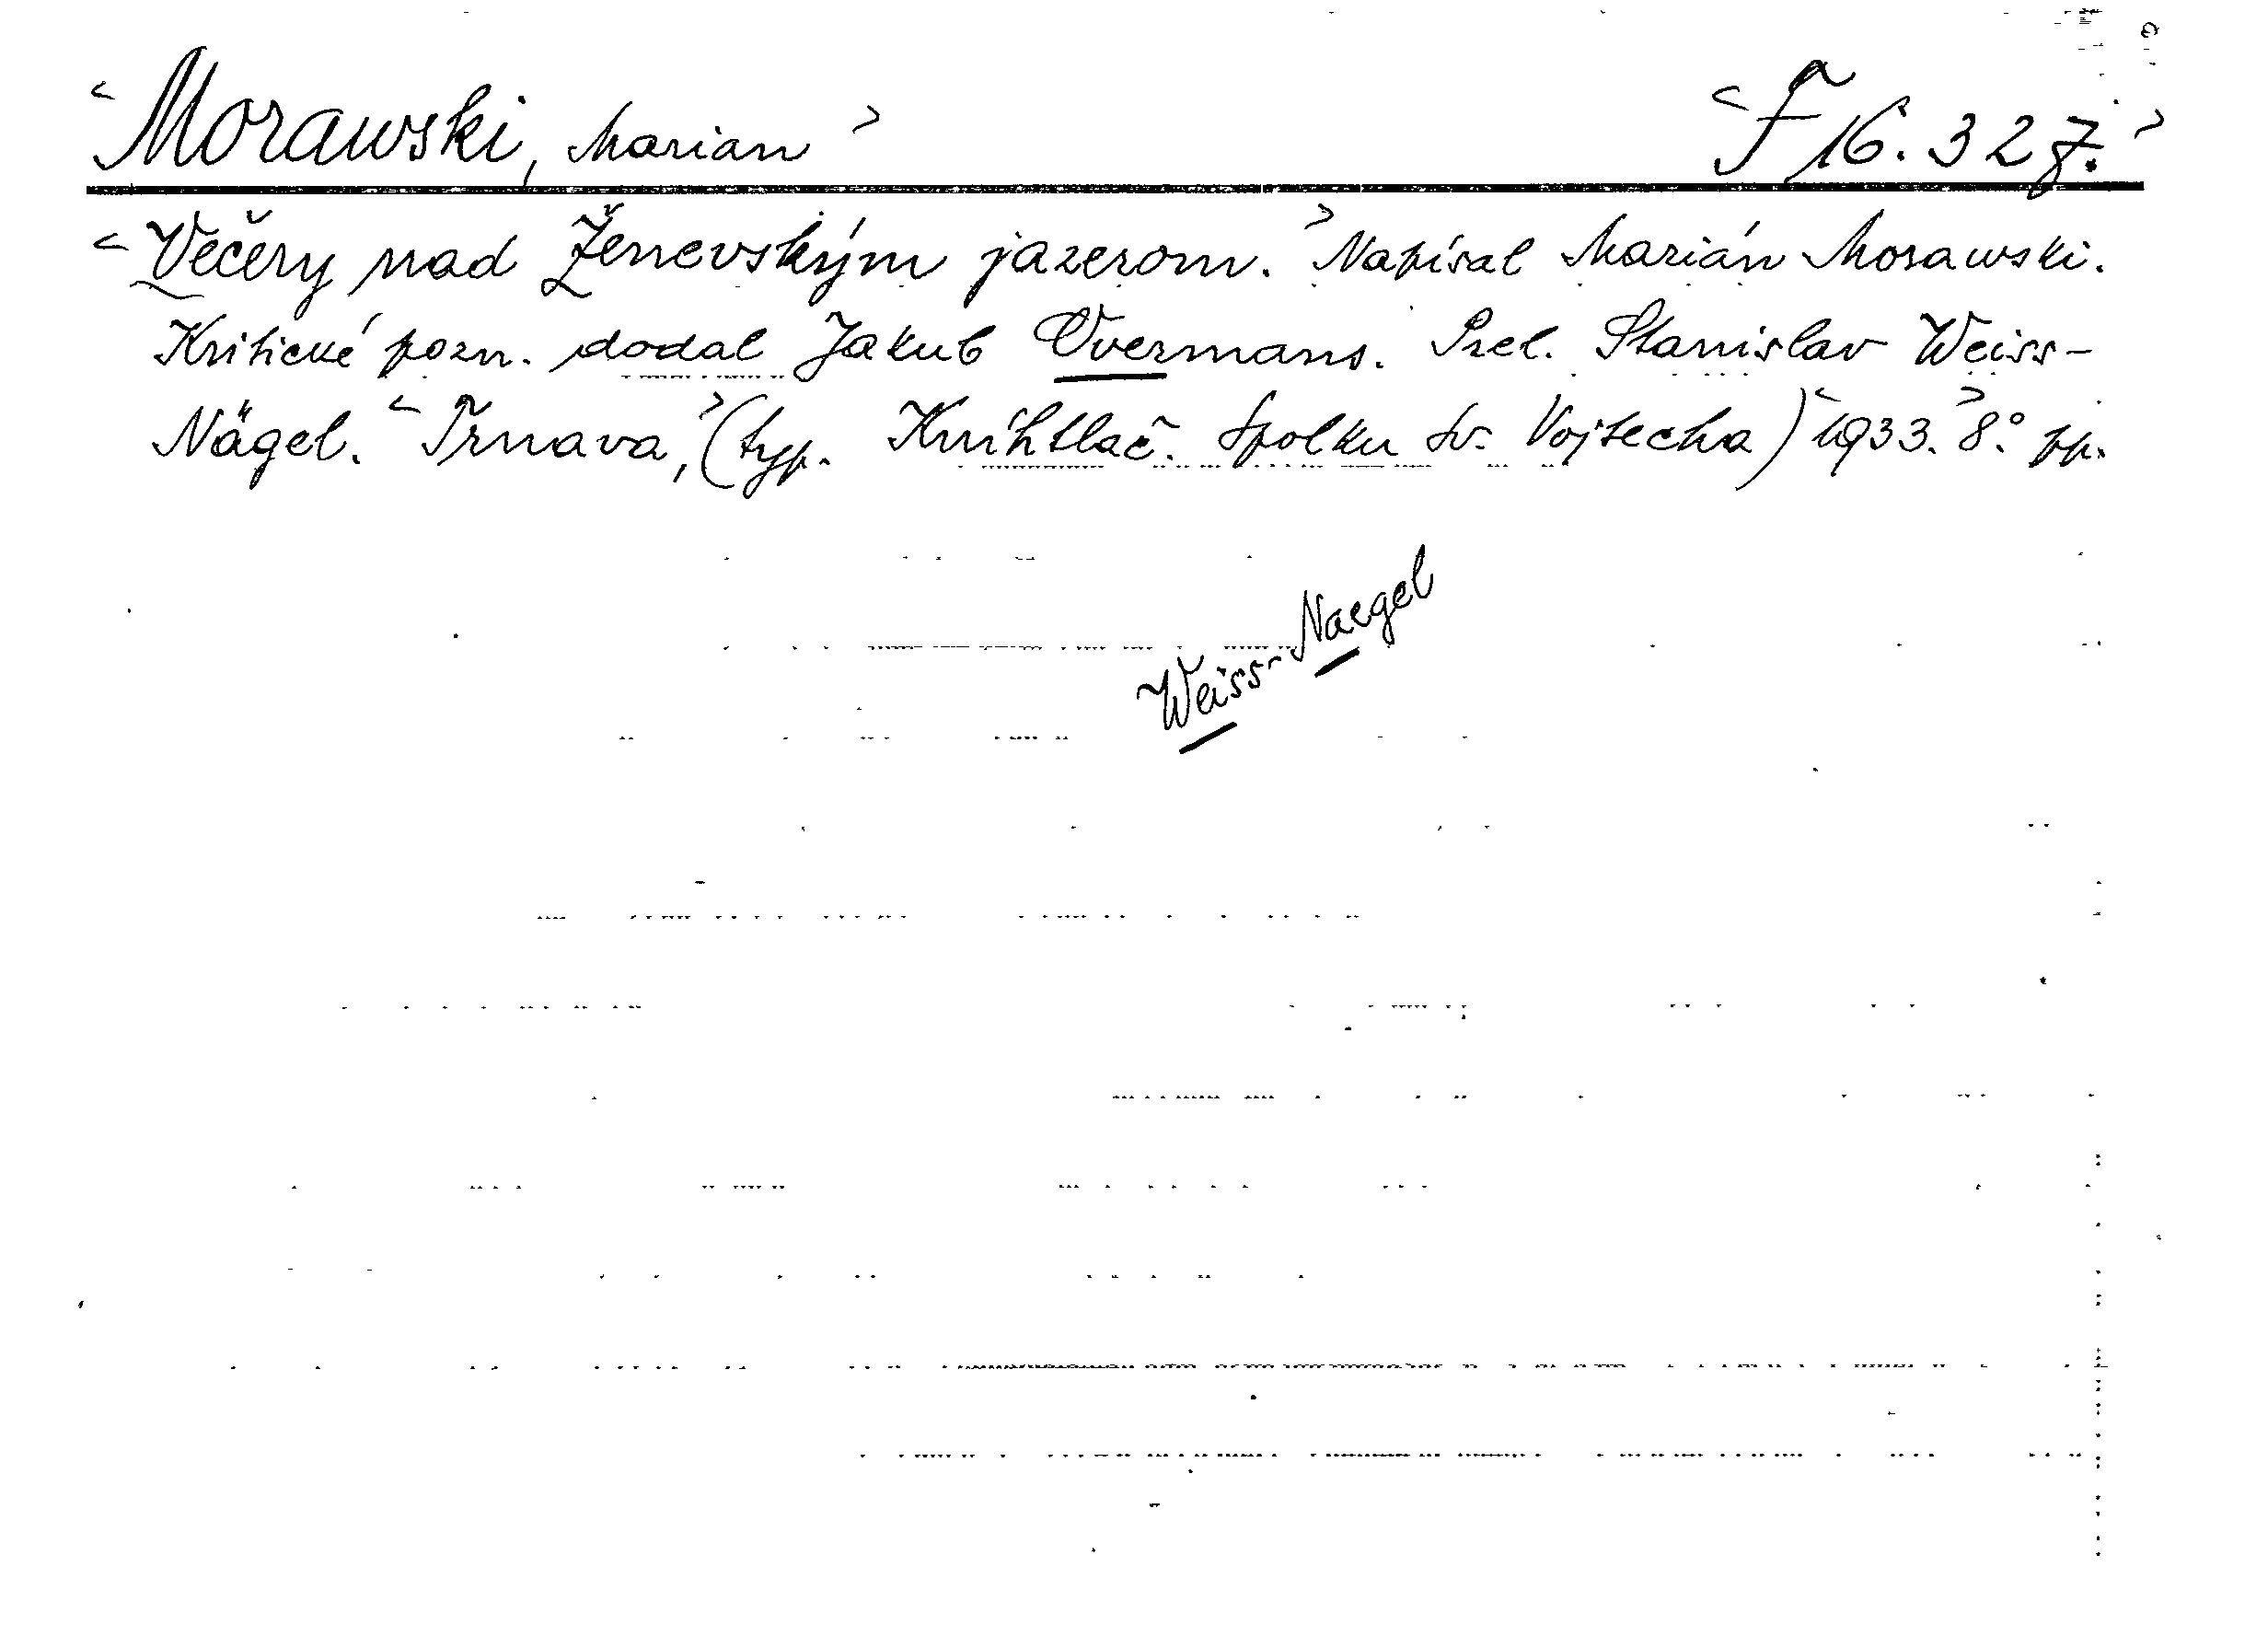 < Morawski, Marian > < F 16.327. >
< Večery nad Ženevským jazerom. > Napísal Marián Morawski.
Kritické pozn. dodal Jakub Overmans. Prel. Stanislav Weiss-
Nägel. < Trnava, > (typ. Kníhtlač. Spolku sv. Vojtecha) < 1933. > 8.° pp.
Weiss-Naegel